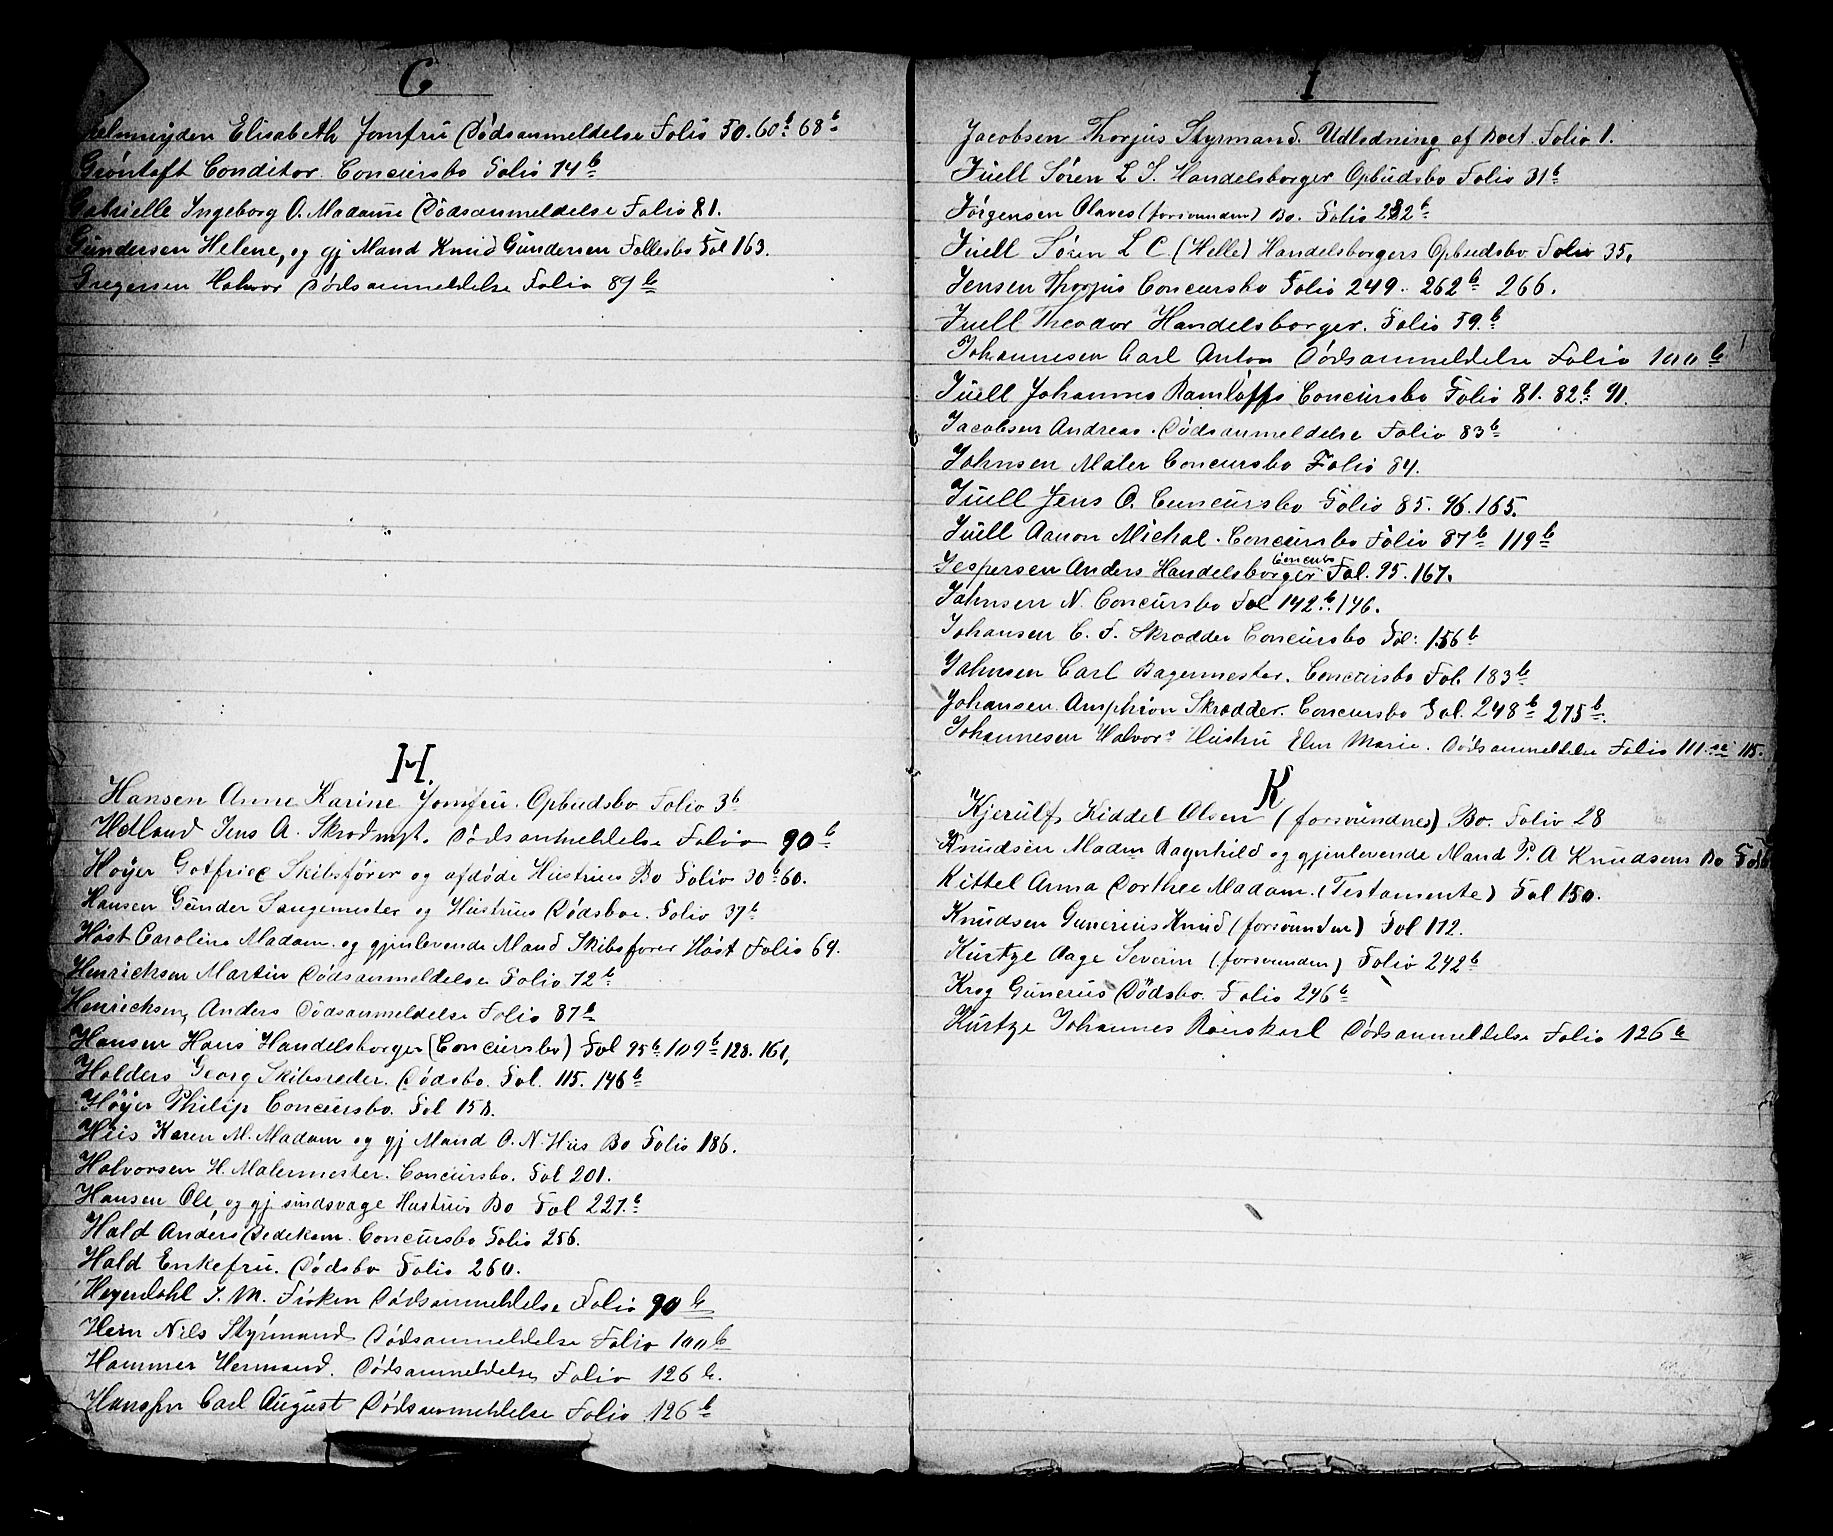 G
Elisabeth Jomfrü Dödsanmeldelse Folio 50. 60b 68b
Gröntoft Conditor. Concürsbo Folio 14b
Gabrielle Ingeborg O. Madame Dödsanmeldelse Folio 81.
Gündersen Helene, og gj Mand Knüd Gündersen Fællesbo Fol 163.
Gregersen Halvor Dödsanmeldelse Folio 89b
H.
Hansen Anne Karine Jomfrü. Opbudsbo Folio 3b
Hetland Jens A. Skrædmgt. Dödsanmeldelse Folio 90b
Höÿer Gotfried Skibsförer og afdöde Hüstrües Bo Folio 30b 60.
Hansen Günder Saugemester og Hüstrües Dödsboe. Folio 37b
Höst Caroline Madam. og gjenlevende Mand Skibsförer Höst Folio 64.
Henrichsen Martin Dödsanmeldelse Folio 72b
Henrichsen, Anders Dödsanmeldelse Folio 87b
Hansen Hans Handelsborger (Concürsbo) Fol 95b 109b 128. 161,
Holders Georg Skibsreder. Dödsbo. Fol. 115. 146b
Höÿer Philip Concürsbo. Fol 158.
Hüs Karen M. Madam og gj Mand O. N. Hüs Bo Folio 186.
Halvorsen H. Malermester. Concürsbo. Fol 201.
Hansen Ole, og gj sindsvage Hustrues Bo Fol 227b
Hald Anders Bedekam. Concürsbo Folio 256.
Hald Enkefrü. Dödsbo Folio 260.
Heyerdahl J. M. Fröken Dödsanmeldelse Folio 90b
Hein Nils Stÿrmand Dödsanmeldelse Folio 100b
Hammer Hermand. Dödsanmeldelse Folio 126b.
Hansen Carl Aügust Dödsanmeldelse Folio 126b
I
Jacobsen Thorjus Styrmand. Udlodning af Boet. Folio 1.
Jüell Sören L. S. Handelsborger Opbüdsbo Folio 31b
Jörgensen Olaves (forsvunden) Bo. Folio 282b
Jüell Sören L C (Helle) Handelsborgers Opbudsbo Folio 35.
Jensen Thorjus Concursbo Folio 249. 262b 266.
Juell Theodor Handelsborger. Folio 59.b
Johannesen Carl Anton Dödsanmeldelse Folio 100b
Jüell Johannes Ramlöffs Concürsbo Folio 81. 82b 91.
Jacobsen Andreas. Dödsanmeldelse Folio 83b
Johnsen Maler Concursbo Folio 84.
Jüell Jens O. Concürsbo Folio 85. 96. 165.
Jüell Aanon Michal. Concürsbo Folio 87b 119b
Jespersen Anders Handelsborger Concursbo Fol. 95. 167.
Johnsen N. Concürsbo Fol 142b. 146.
Johansen C. F. Skrædder Concürsbo Fol: 156b
Johnsen Carl Bagermester. Concürsbo Fol. 183b
Johansen Amphion Skrædder. Concursbo Fol. 248b 275b.
Johannesen Halvors Hüstrü Elen Marie. Dödsanmeldelse Folio 111 115.
K
Kjerülf, Kiddel Olsen (forsvündnes) Bo. Folio 28
Knüdsen Madm Ragnhild og gjenlevende Mand P. A Knudsens Bo
Kittel Anna Dorthea Madam. (Testamente) Fol 150.
Knüdsen Gunerius Knüd (forsvunden) Fol 172.
Kürtze Aage Severin (forsvunden) Folio 242b
Krog Günerüs Dödsbo. Folio 246b
Kürtze Johannes Dödsanmeldelse Folio 126b